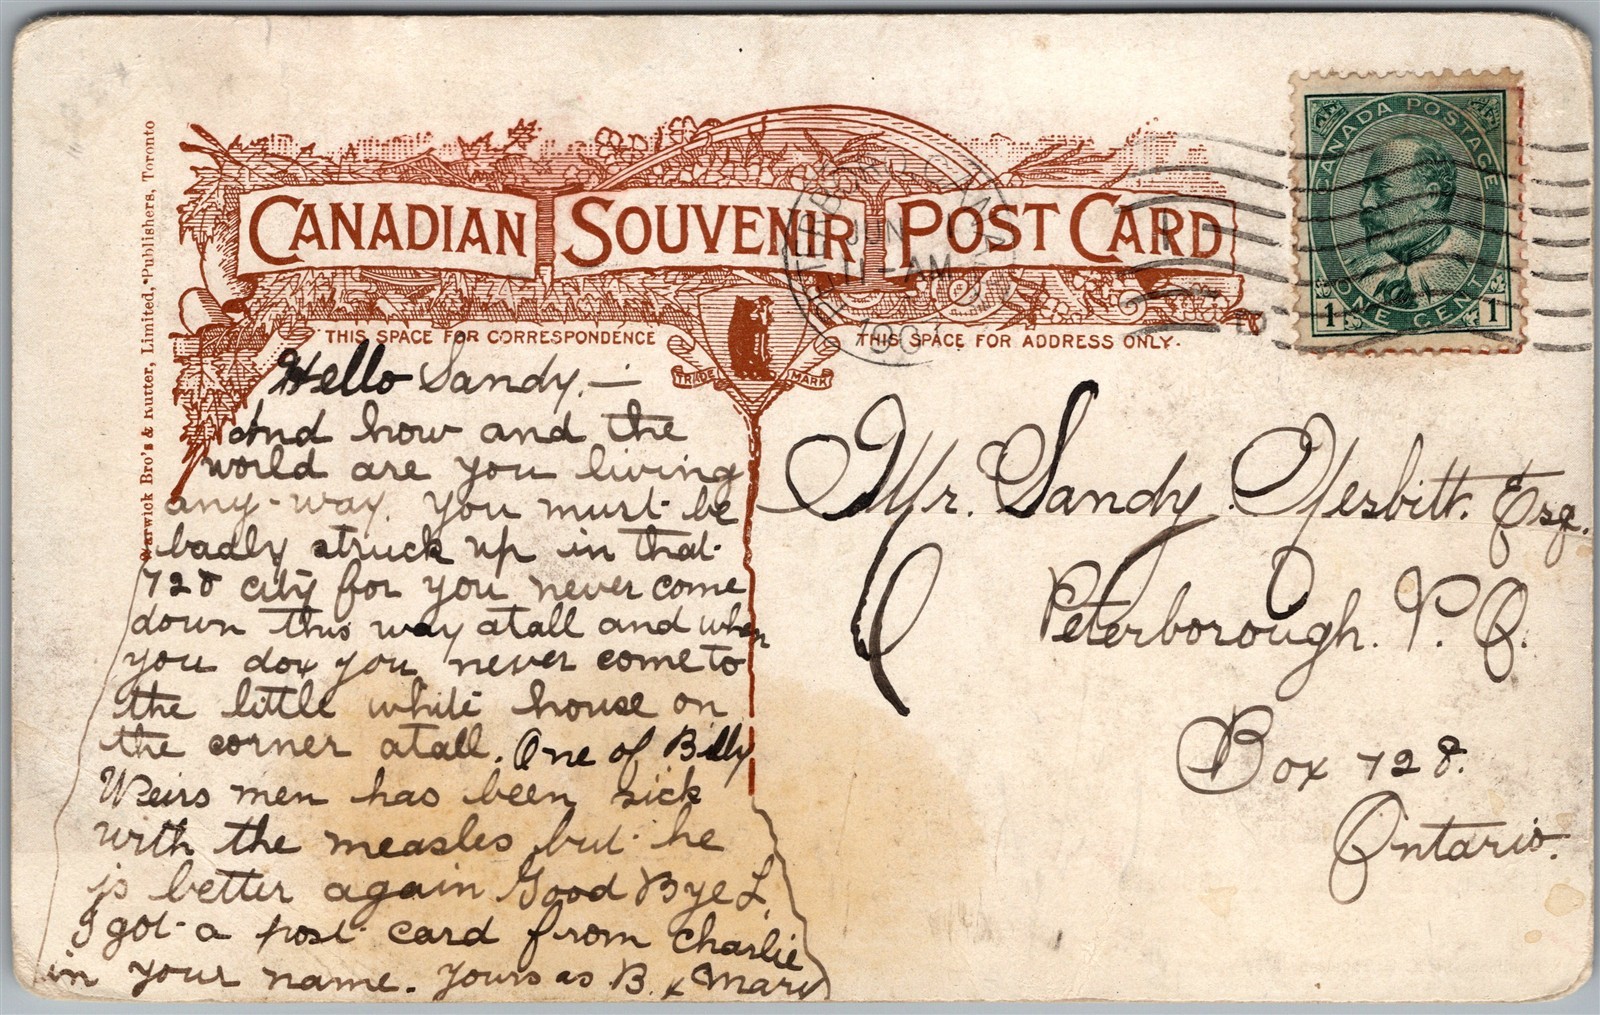 CANADIAN SOUVENIR POST CARD
THIS SPACE FOR CORRESPONDENCE
THIS SPACE FOR ADDRESS ONLY.
TRADE MARK
Warwick Bro's & Rutter, Limited, Publishers, Toronto
CANADA POSTAGE
1 ONE CENT 1
JUN
11-AM
190
Hello Sandy. —
And how and the
world are you living
any-way. You must be
badly struck up in that
728 city for you never come
down this way atall and when
you dox you never come to
the little white house on
the corner atall. One of Billy
Weirs men has been sick
with the measles but he
is better again Good Bye L.
I got a post card from Charlie
in your name. Yours as B. x Mary
Mr. Sandy Nesbitt. Esq.
Peterborough. P. O.
Box 728.
Ontario.